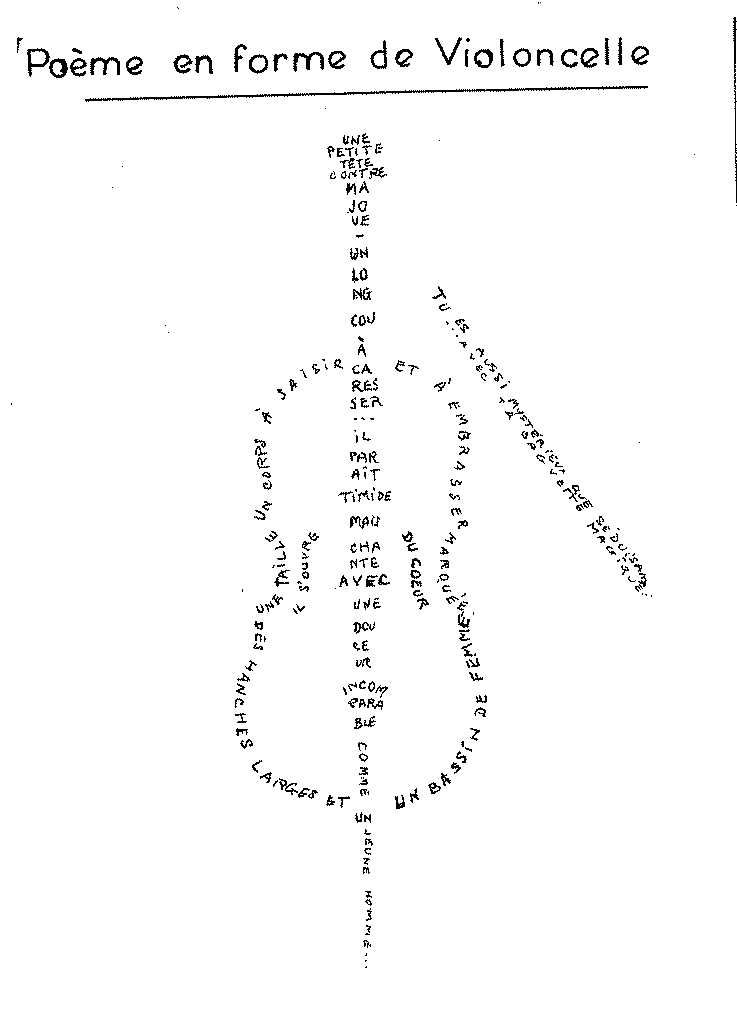 Poème en forme de Violoncelle
UNE
PETITE
TÊTE
CONTRE
MA
JO
UE
-
UN
LO
NG
COU
À
CA
RES
SER
...
IL
PAR
AÎT
TIMIDE
MAIS
CHA
NTE
AVEC
UNE
DOU
CE
UR
INCOM
PARA
BLE
COMME
UN
JEUNE HOMME...
UN CORPS À SAISIR ET À EMBRASSER
UNE TAILLE MARQUÉE,
IL S'OUVRE
DU COEUR
DES HANCHES LARGES ET UN BASSIN DE FEMME
TU ES AUSSI MYSTÉRIEUX QUE SÉDUISANT
...AVEC TA BAGUETTE MAGIQUE.